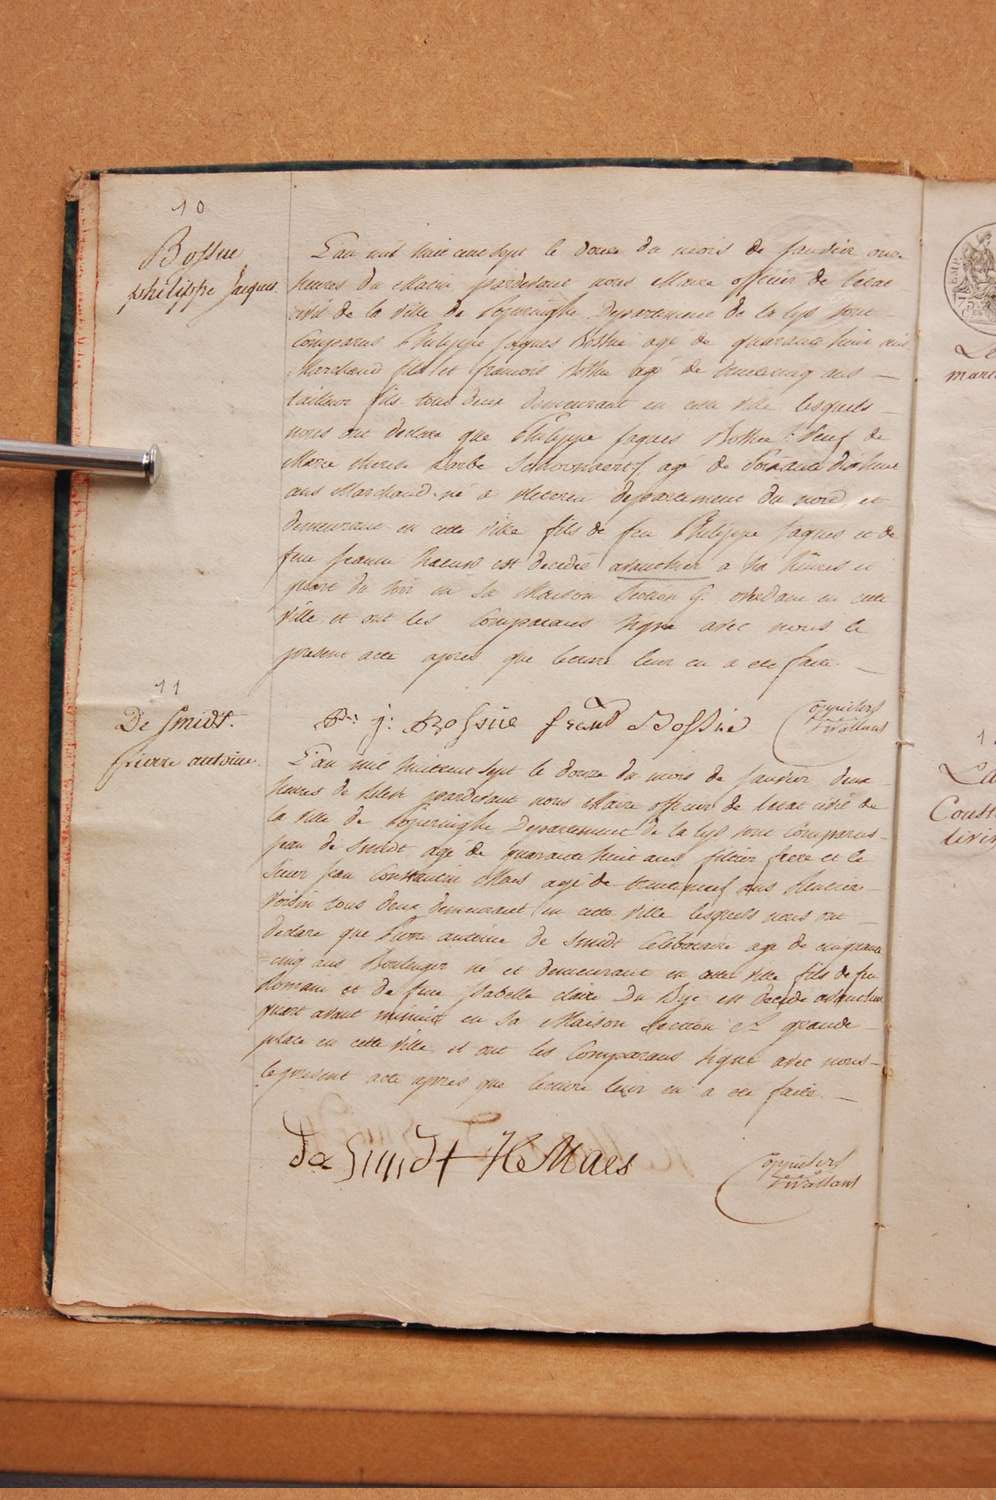 10
Bossue
philippe Jaques
L'an mil huit cent sept le douze du mois de Janvier onze
heures du Matin pardevant nous Maire officier de l'etat
civil de la ville de Poperinghe Departement de la lys sont
Comparus Philippe Jaques Bossue agé de quarante huit ans
Marchand fils et francois Bossue agé de trente cinq ans —
tailleur fils tous deux demeurant en cette ville lesquels —
nous ont declaré que Philippe Jaques Bossue veuf de
Marie therese Barbe agé de Soixante dix huit
ans Marchand né a Meteren departement du nord et
demeurant en cette ville fils de feu Philippe Jaques et de
feue Jeanne est decedé avant hier a six heures et
quart du soir en sa Maison Section G. en cette
ville et ont les Comparans signé avec nous le
present acte apres que lecture leur en a eté faite —
P: j: Bossüe frans Bossüe
11
De Smidt
pierre antoine
L'an mil huit cent sept le douze du mois de Janvier deux
heures de relevée pardevant nous Maire officier de l'etat civil de
la ville de Poperinghe Departement de la lys sont Comparus
jean de Smidt agé de quarante huit ans frere et le
Sieur jean Constantin Maes agé de trente neuf ans Rentier
Voisin tous deux demeurant en cette ville lesquels nous ont —
declaré que Pierre antoine de Smidt Celibataire agé de cinquante
=cinq ans Boulanger né et demeurant en cette ville fils de feu
Romain et de feue Isabelle claire De Bye est decedé avant hier
quart avant minuit en sa Maison Section grande
place en cette ville et ont les Comparans signé avec nous —
le present acte apres que lecture leur en a eté faite —
De Smidt JC Maes